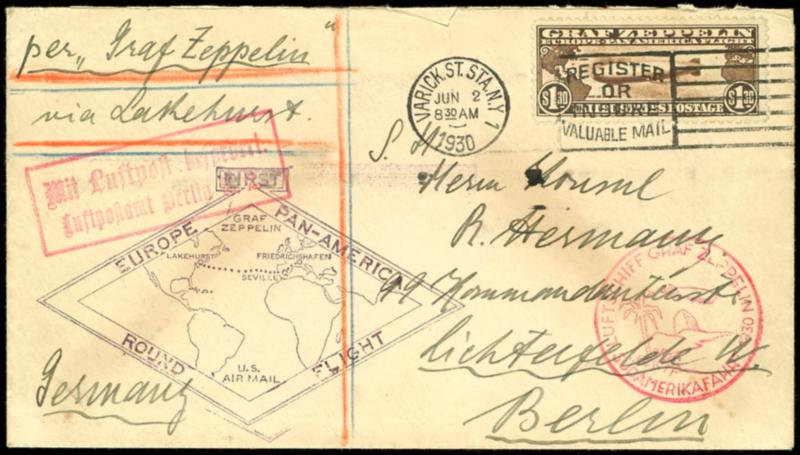 per „Graf Zeppelin"
via Lakehurst.
VARICK.ST.STA.N.Y
1
JUN 2
8 30 AM
1930
GRAF ZEPPELIN
EUROPE PAN AMERICA FLIGHT
$1.30
U.S. POSTAGE
$1.30
REGISTER
OR
INSURE
VALUABLE MAIL
Mit Luftpost befördert.
Luftpostamt Berlin
FIRST
EUROPE
PAN-AMERICA
ROUND
FLIGHT
GRAF
ZEPPELIN
LAKEHURST
FRIEDRICHSHAFEN
SEVILLE
U.S.
AIR MAIL
S. H.
Herrn Konsul
R. Hermann
49 Kommandantenstr.
Lichterfelde W.
Berlin
Germany
LUFTSCHIFF GRAF ZEPPELIN
SÜDAMERIKAFAHRT 1930